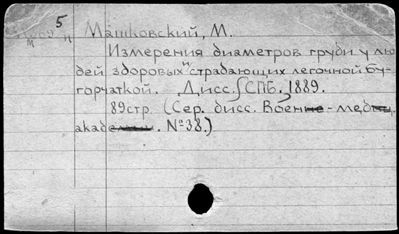 5
Машковский, М.
Измерения диаметров груди у лю
дей здоровых и страдающих легочной бу-
горчаткой. Дисс. СПБ. 1889.
89стр. (Сер. дисс. Воен - мед
акад . №38.)